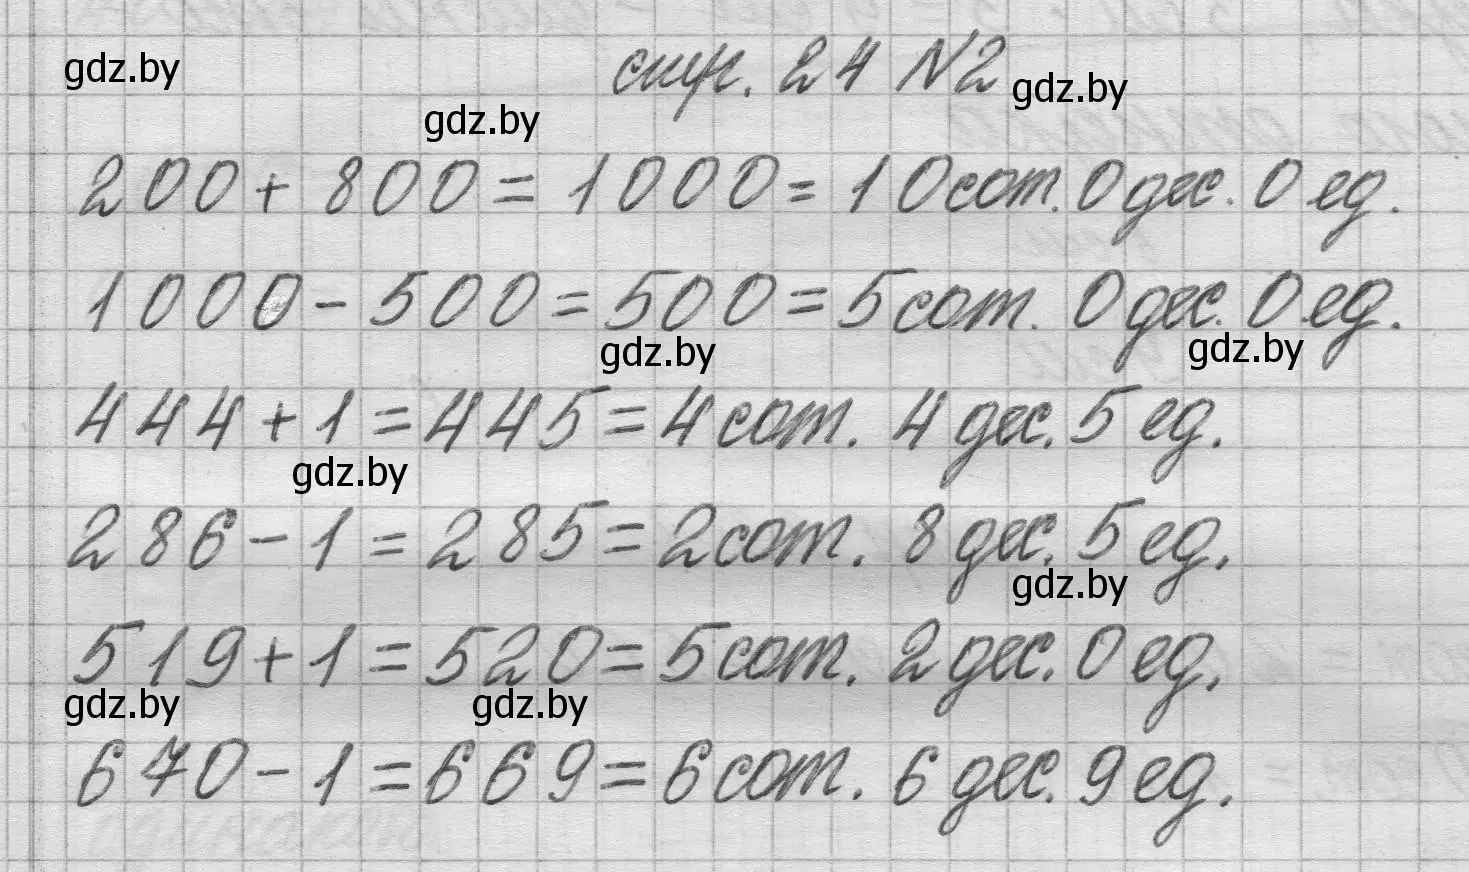 gdz.by
стр. 24 №2
gdz.by
gdz.by
200 + 800 = 1000 = 10 сот. 0 дес. 0 ед.
1000 - 500 = 500 = 5 сот. 0 дес. 0 ед.
gdz.by
gdz.by
444 + 1 = 445 = 4 сот. 4 дес. 5 ед.
gdz.by
286 - 1 = 285 = 2 сот. 8 дес. 5 ед.
gdz.by
519 + 1 = 520 = 5 сот. 2 дес. 0 ед.
gdz.by
gdz.by
670 - 1 = 669 = 6 сот. 6 дес. 9 ед.